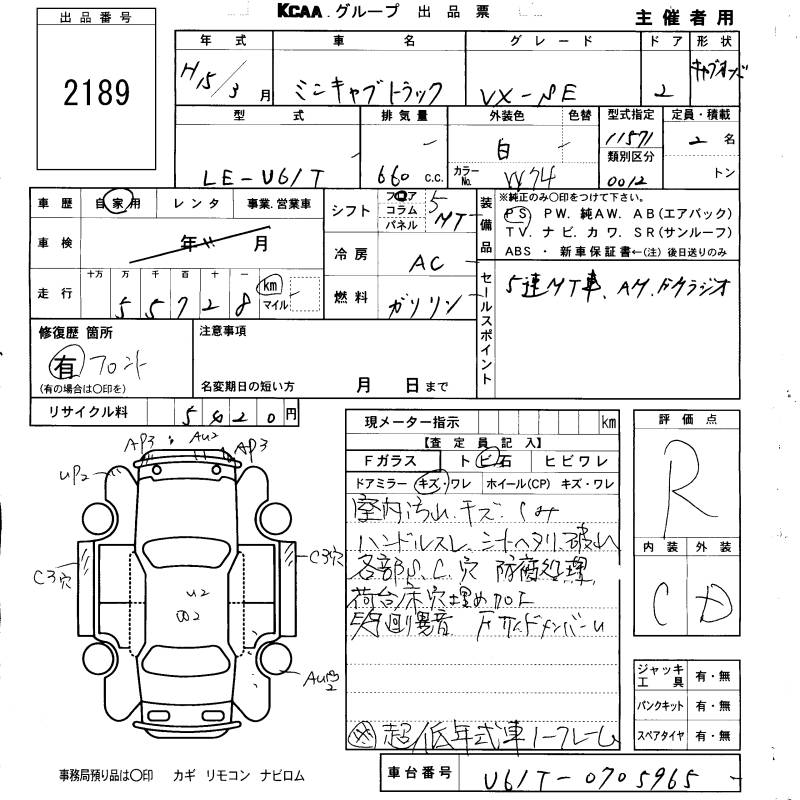 KCAA グループ 出品票
主催者用
出品番号
2189
年式 車名 グレード ドア 形状
H15/3月 ミニキャブトラック VX-SE 2 キャブオーバ
型式 排気量 外装色 色替 型式指定 定員・積載
LE-U61T 660 c.c. 白 カラーNo. W74 11571 2名
類別区分
0012 トン
車歴 自家用 レンタ 事業.営業車
車検 年 月
走行 十万 万 千 百 十 一
55728 km マイル
シフト フロア コラム パネル 5 MT
冷房 AC
燃料 ガソリン
装備品
※純正のみ〇印をつけて下さい。
PS PW. 純AW. AB(エアバック)
TV. ナビ. カワ. SR(サンルーフ)
ABS ・ 新車保証書←(注)後日送りのみ
セールスポイント
5速MT車、AM.Fムラジオ
修復歴 箇所
有 フロント
(有の場合は〇印を)
注意事項
名変期日の短い方 月 日まで
リサイクル料 5420円
現メーター指示 km
【査定員記入】
Fガラス トビ石 ヒビワレ
ドアミラー キズ・ワレ ホイール(CP) キズ・ワレ
室内汚れ.キズ.しみ
ハンドルスレ シートヘタリ.破れ
各部S.C.穴 防腐処理
荷台床穴埋め加工
異音 FサイドメンバーU
超低年式車ノークレーム
評価点
R
内装 外装
C D
ジャッキ工具 有・無
パンクキット 有・無
スペアタイヤ 有・無
AP3 AU2 AP3
UP2
C3穴 C3穴
U2
AUP2
事務局預り品は〇印 カギ リモコン ナビロム
車台番号 U61T-0705965